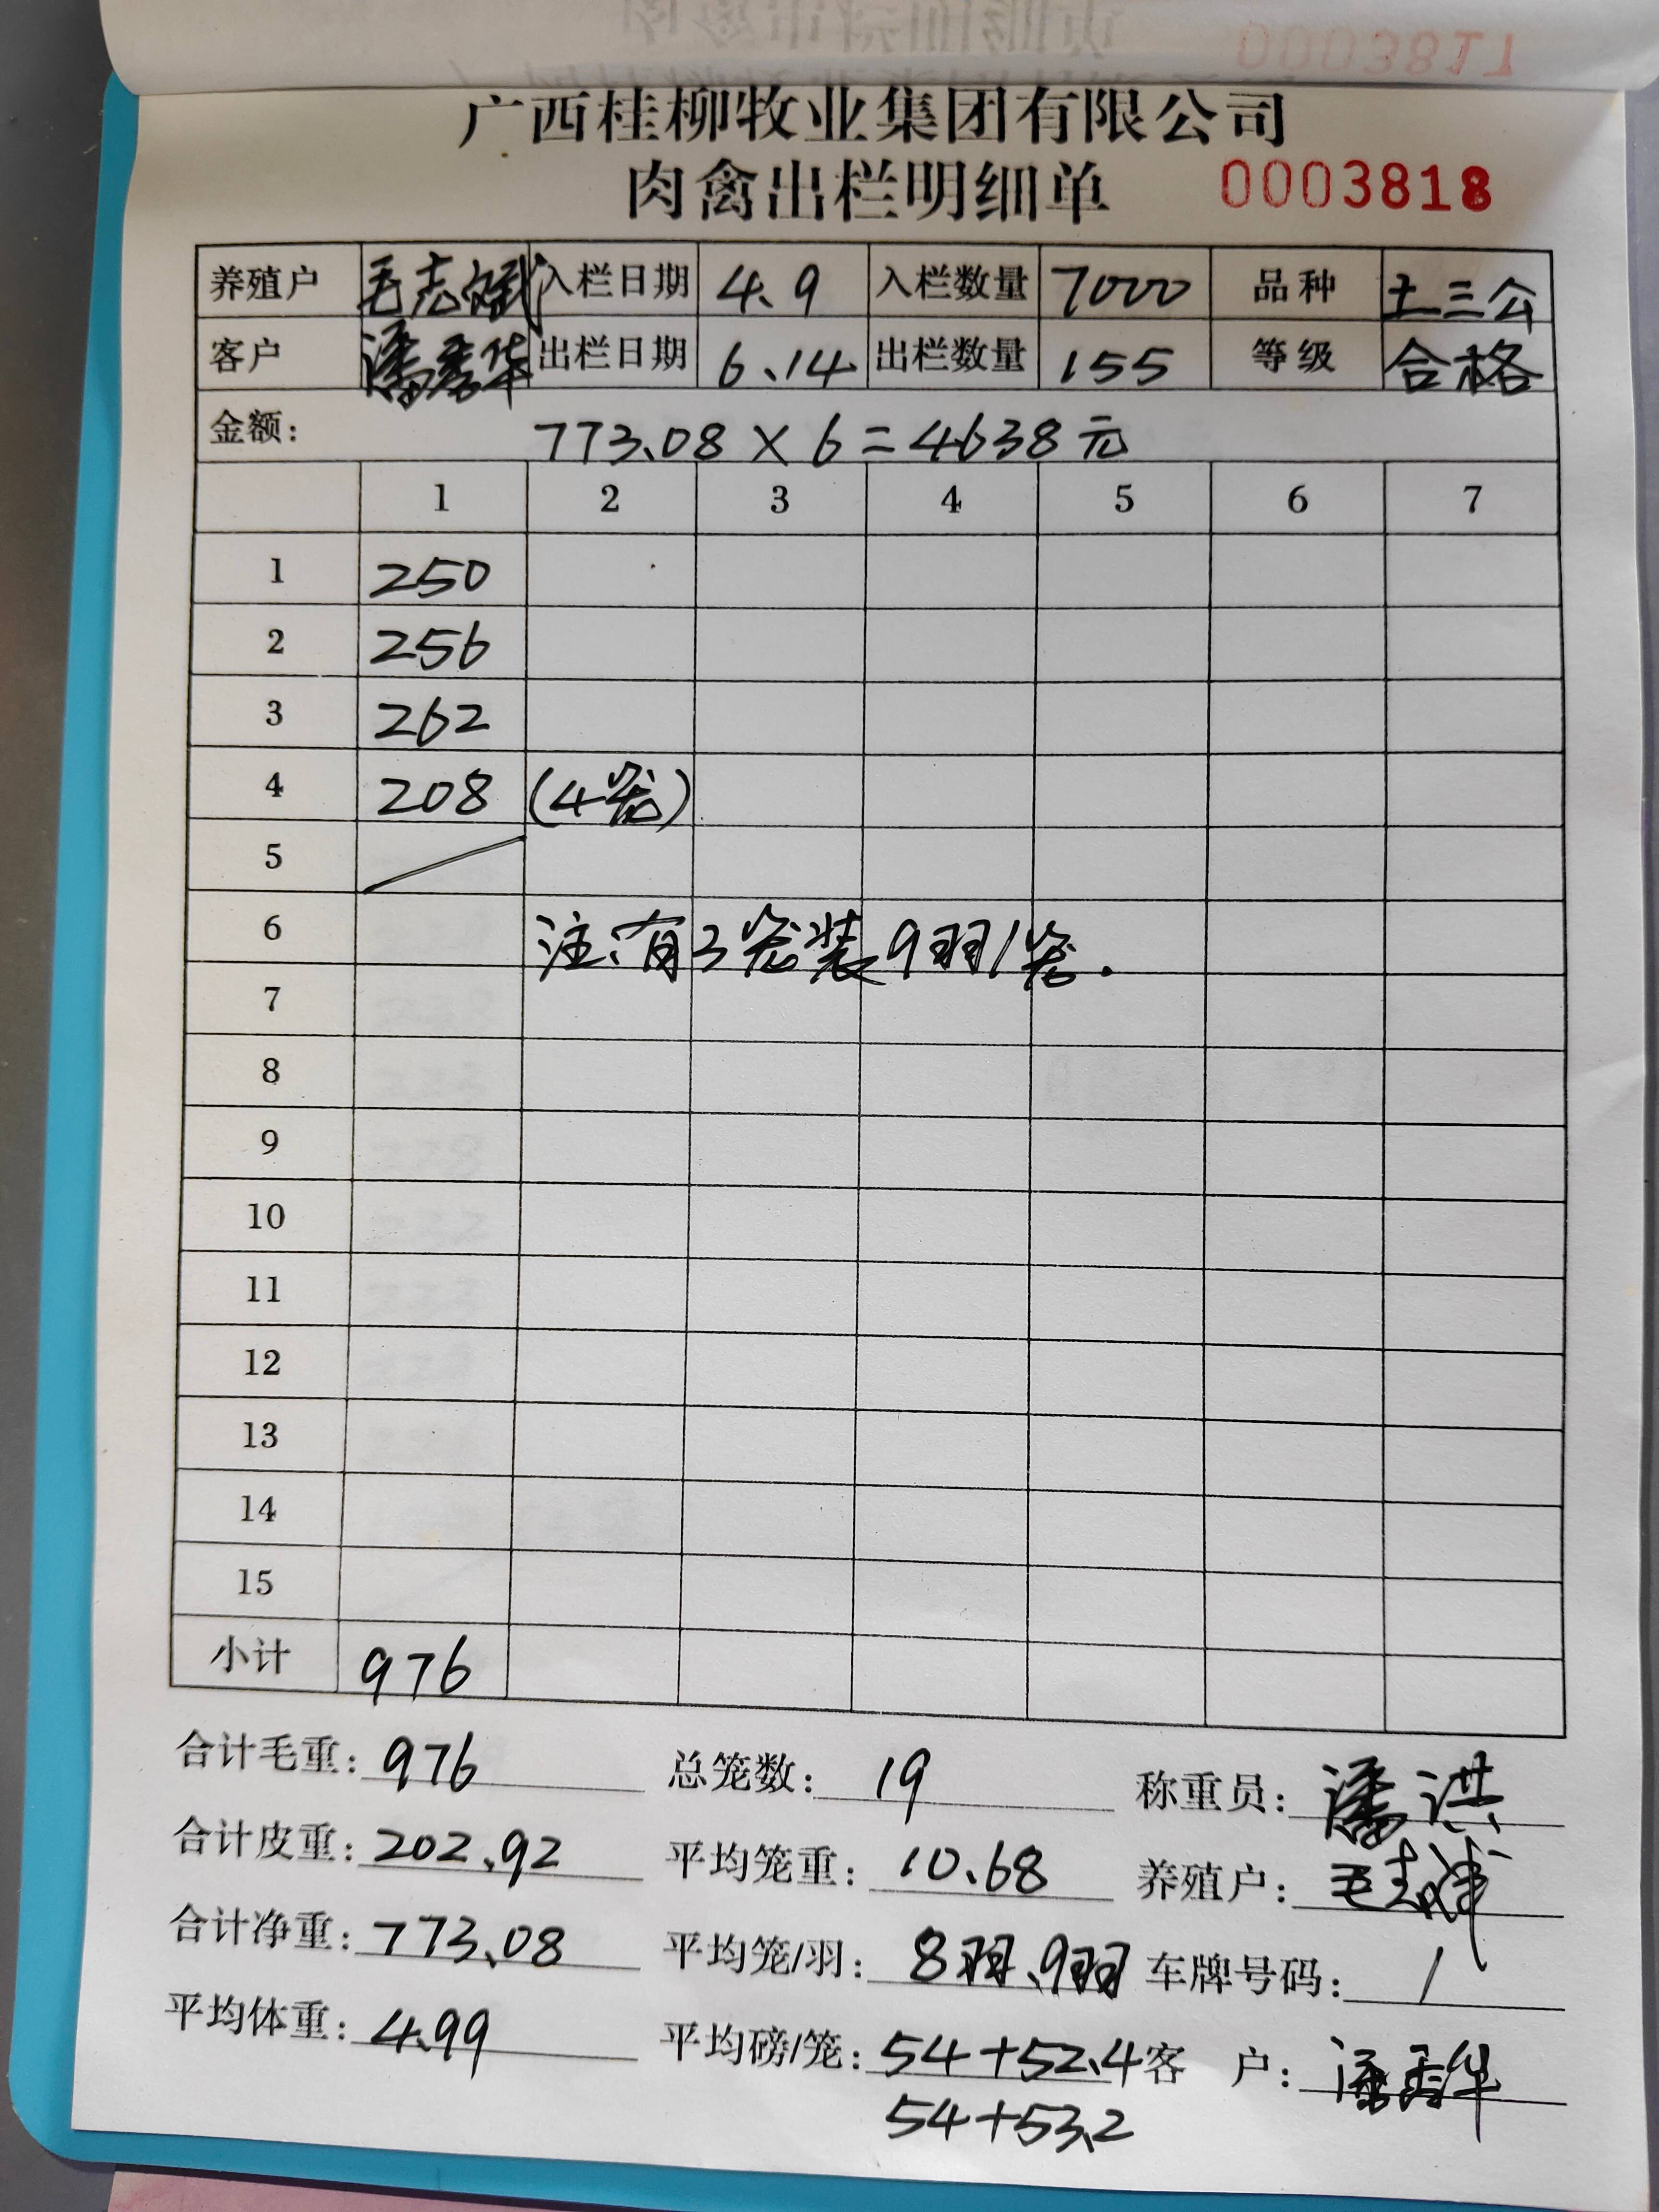 0003817
广西桂柳牧业集团有限公司
肉禽出栏明细单 0003818
养殖户 毛志斌 入栏日期 4.9 入栏数量 7000 品种 土三公
客户 潘秀华 出栏日期 6.14 出栏数量 155 等级 合格
金额: 773.08×6=4638元
1 2 3 4 5 6 7
1 250
2 256
3 262
4 208 (4笼)
5
6 注:有3笼装9羽1笼.
7
8
9
10
11
12
13
14
15
小计 976
合计毛重: 976 总笼数: 19 称重员: 潘洪
合计皮重: 202.92 平均笼重: 10.68 养殖户: 毛志斌
合计净重: 773.08 平均笼/羽: 8羽、9羽 车牌号码: /
平均体重: 4.99 平均磅/笼: 54+52.4 客户: 潘秀华
54+53.2